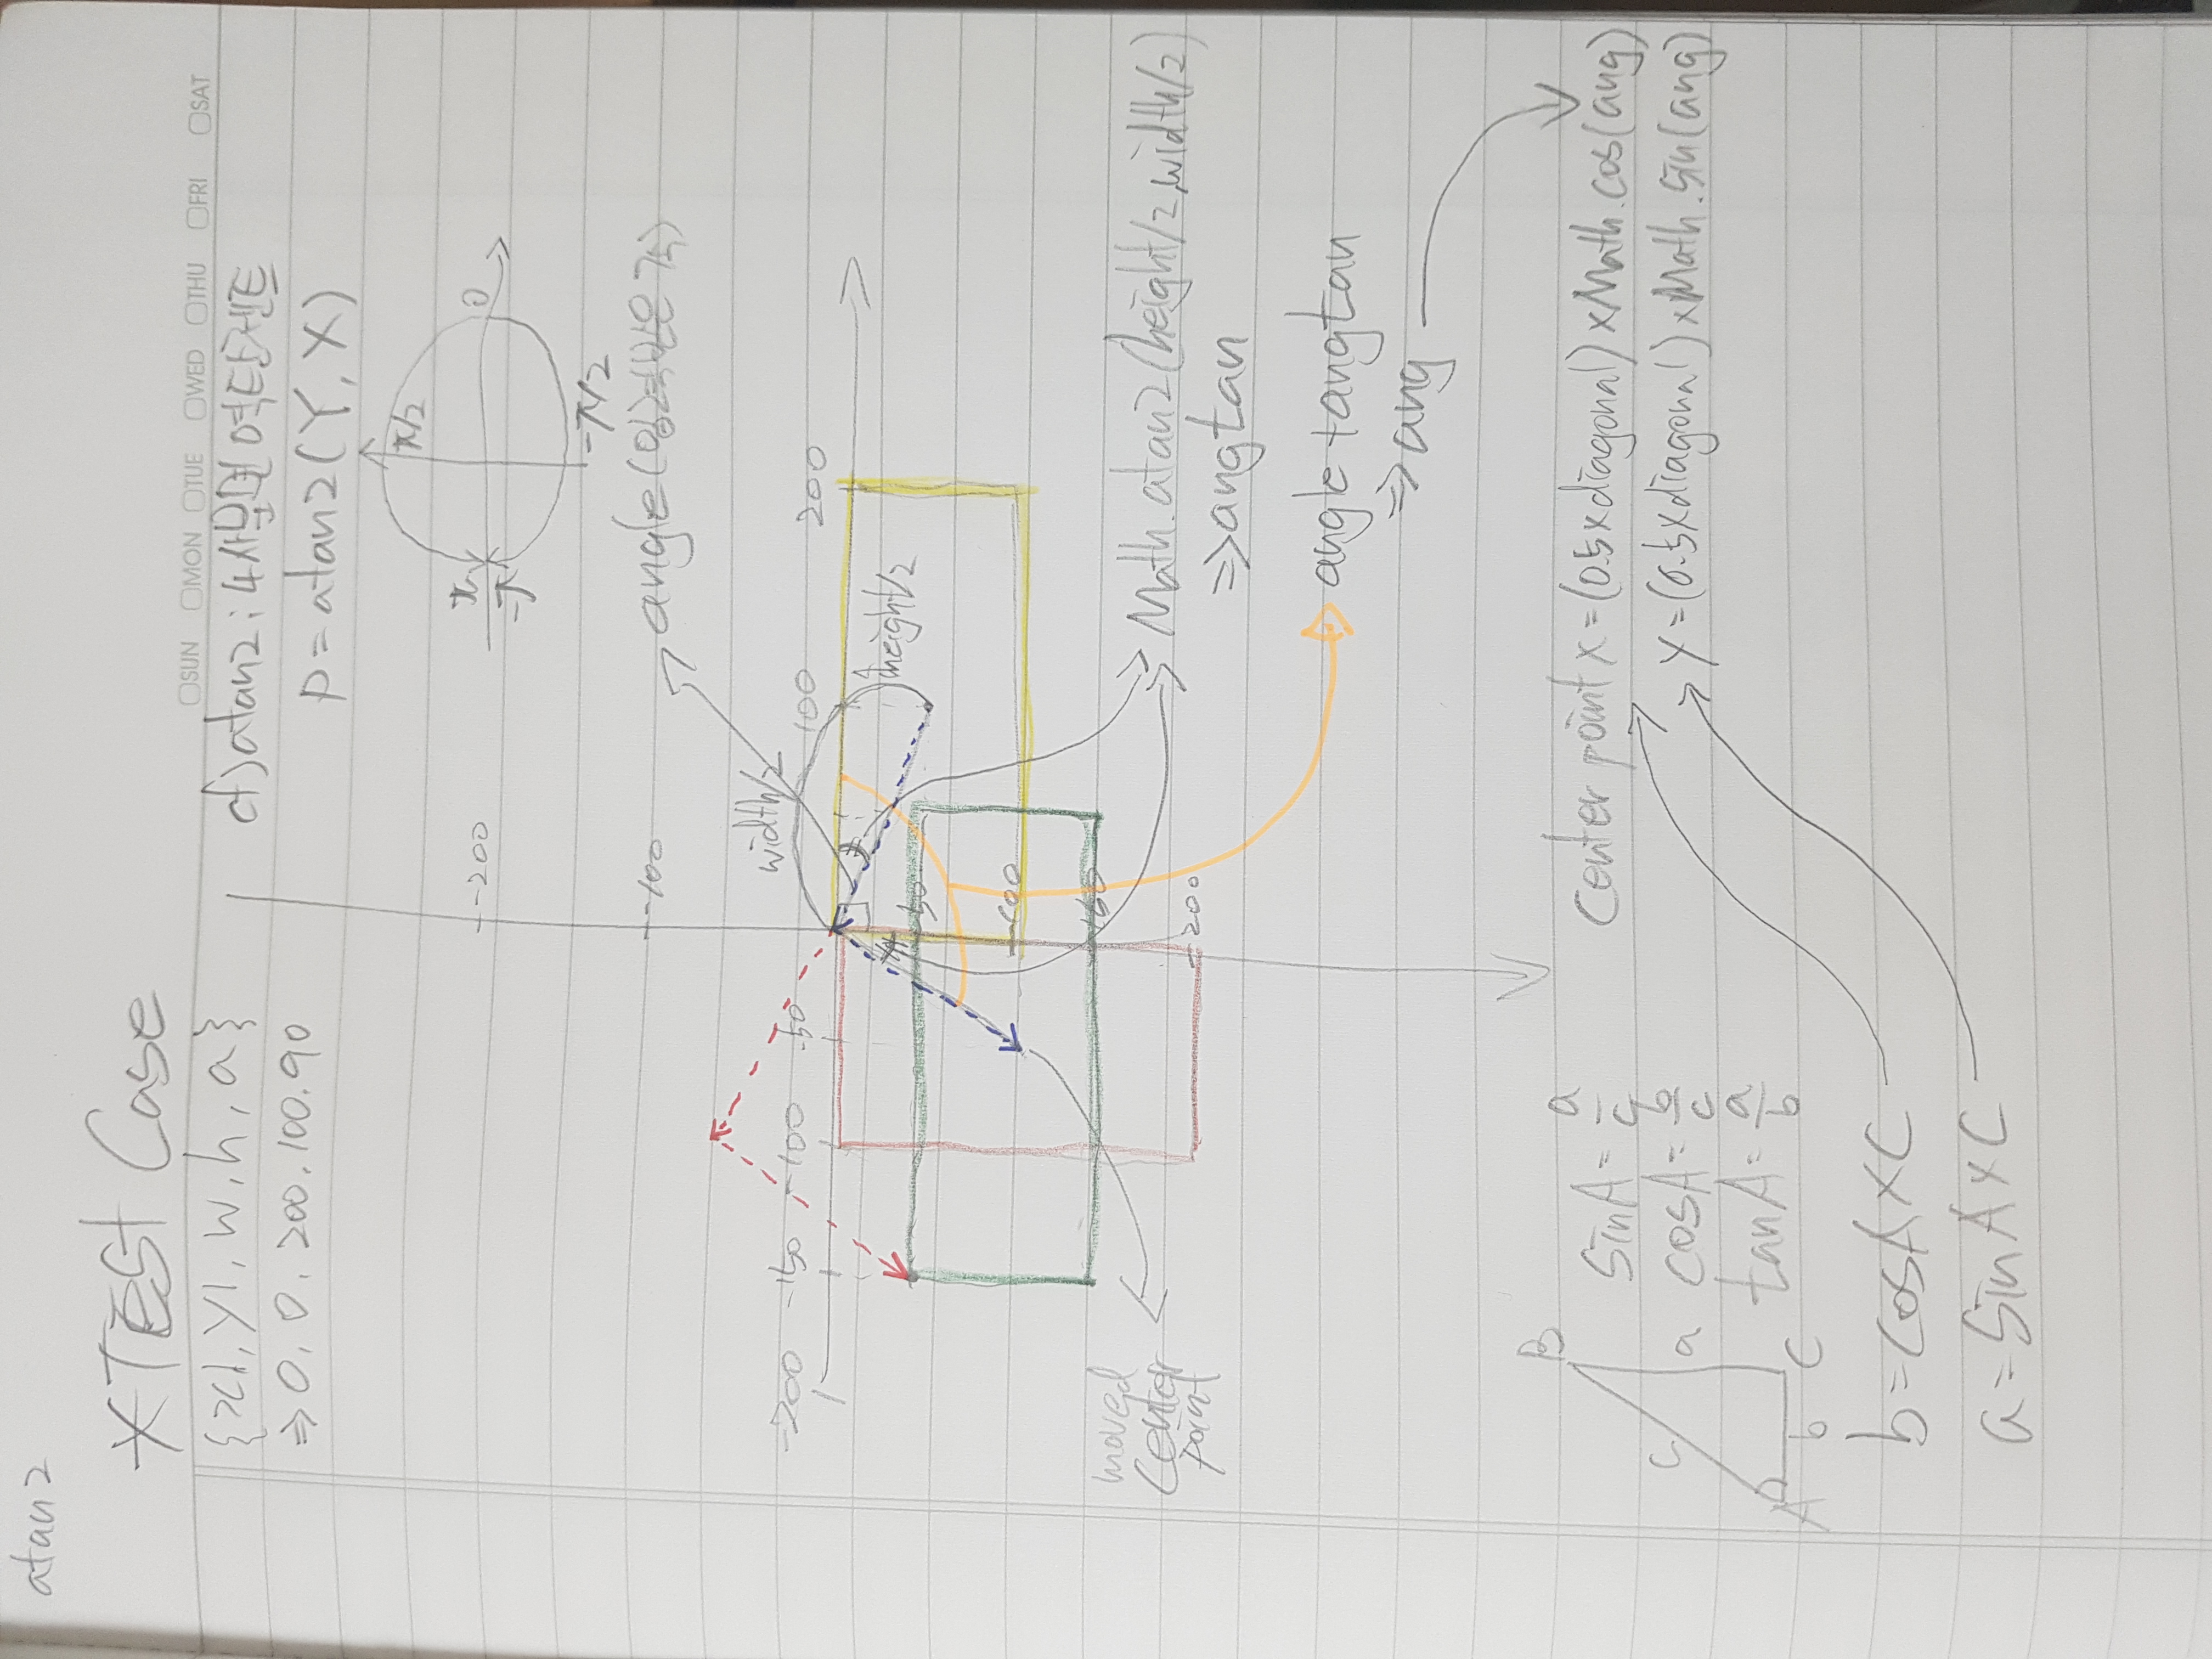 atan2
*TEST Case
○SUN ○MON ○TUE ○WED ○THU ○FRI ○SAT
{x1, y1, w, h, a}
⇒ 0, 0, 200, 100, 90
cf) atan2 : 4사분면 역탄젠트
P = atan2(Y, X)
π/2
π
0
-π
-π/2
-200
-100
angle(입력받은 각)
width/2
-200 -150 -100 -50 100 200
height/2
50
100
150
200
moved
Center
point
Math.atan2(height/2, width/2)
⇒ angtan
angle + angtan
⇒ ang
B
c
a
A
b
C
sinA = a/c
cosA = b/c
tanA = a/b
Center point x = (0.5 x diagonal) x Math.cos(ang)
y = (0.5 x diagonal) x Math.sin(ang)
b = cosA x C
a = sinA x C